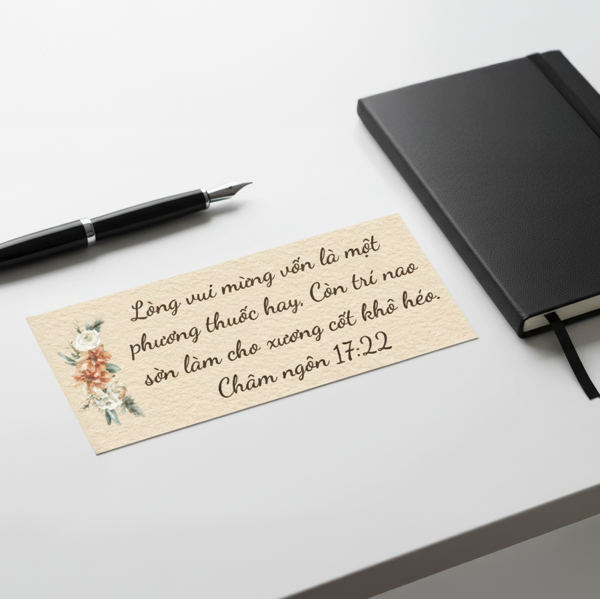 Lòng vui mừng vốn là một
phương thuốc hay, Còn trí nao
sờn làm cho xương cốt khô héo.
Châm ngôn 17:22